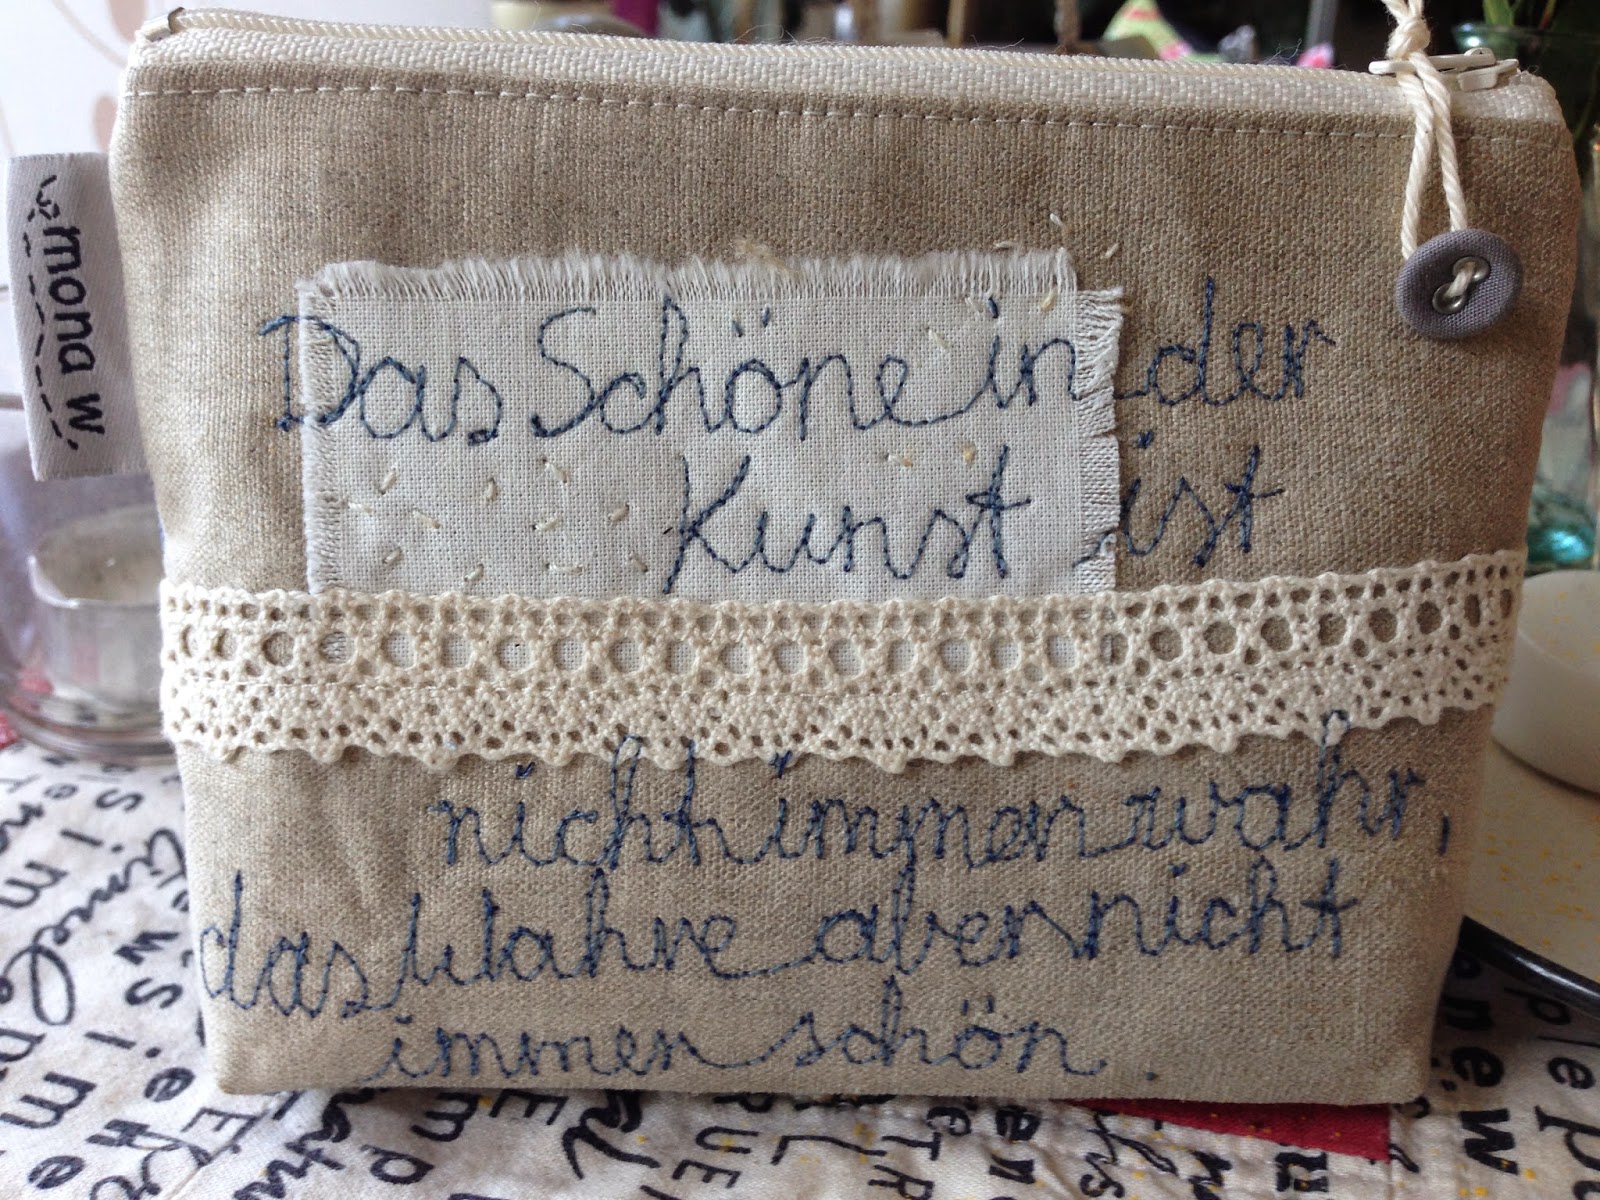 mona w.
Das Schöne in der
Kunst ist
nicht immer wahr,
das Wahre aber nicht
immer schön.